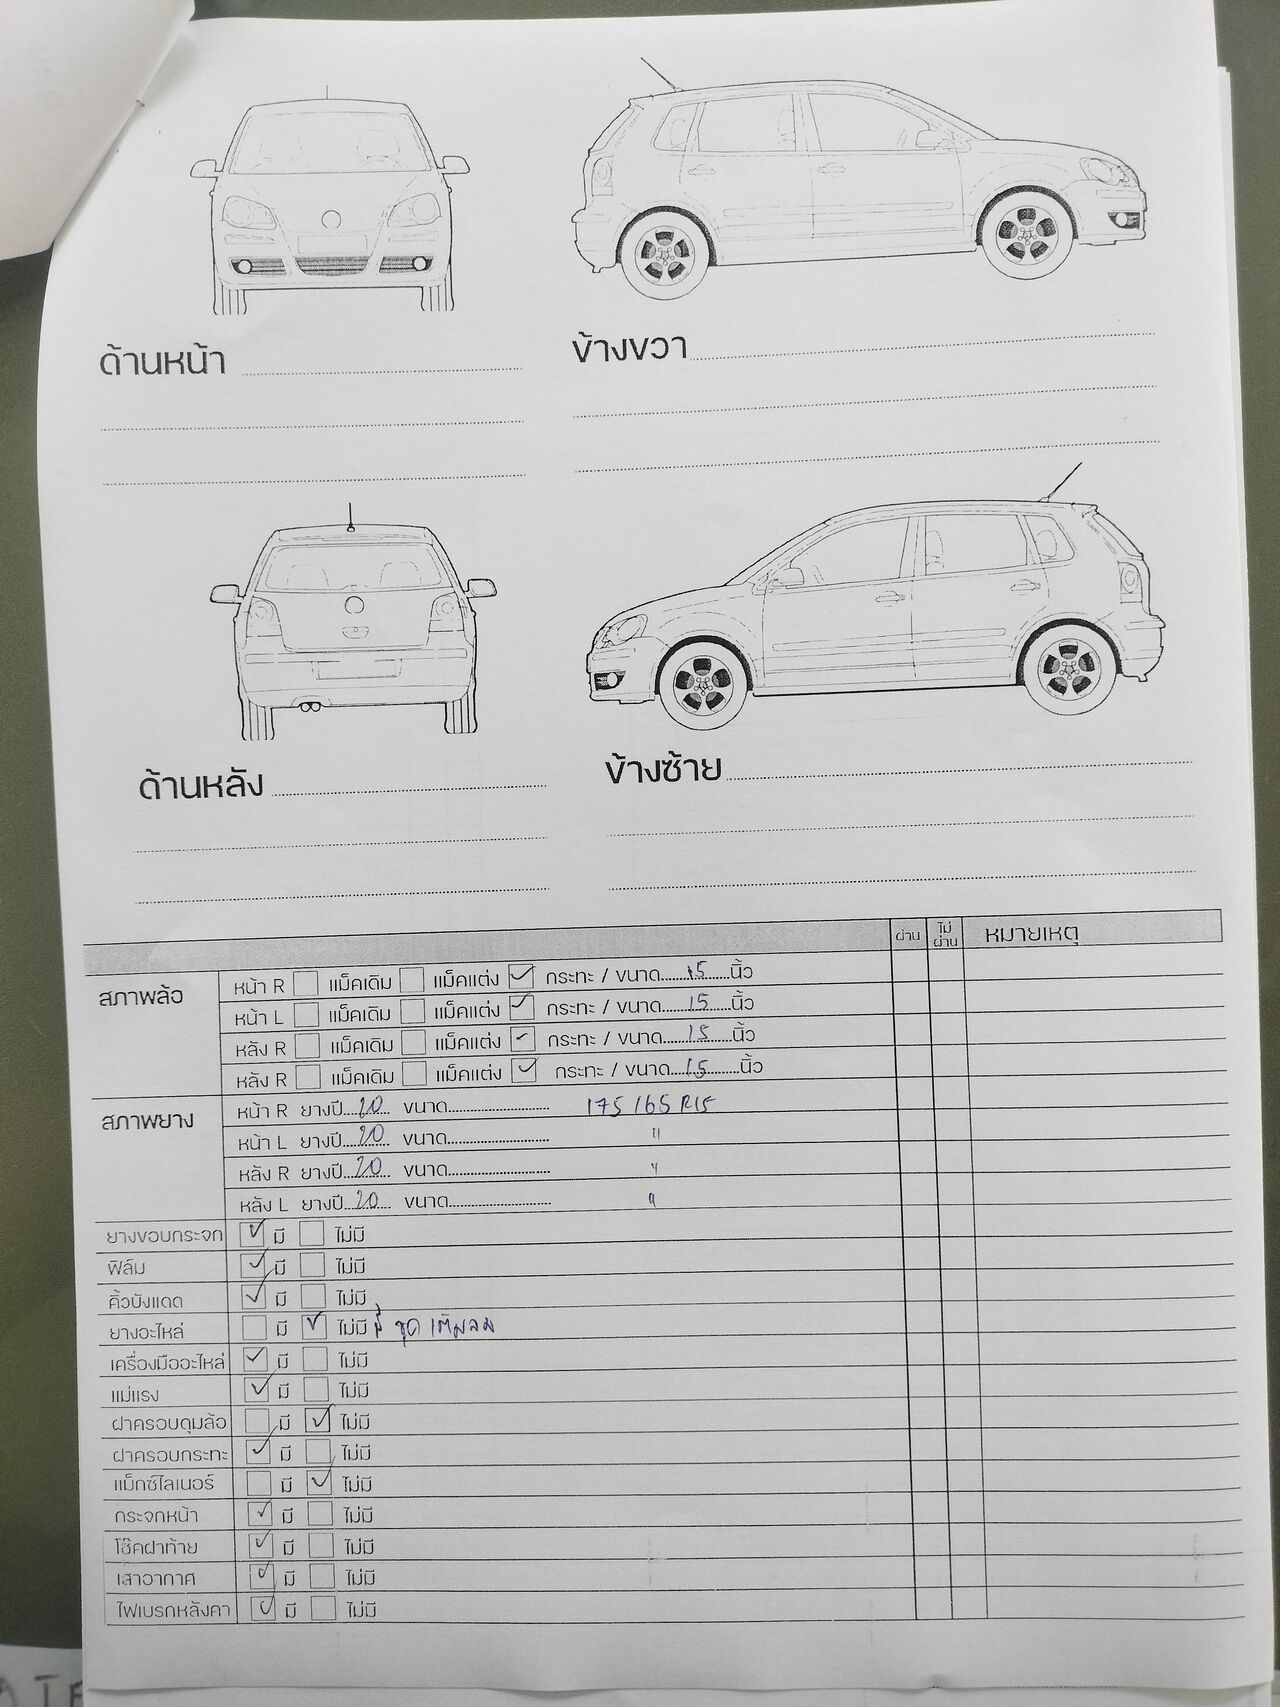 ด้านหน้า
ข้างขวา
ด้านหลัง
ข้างซ้าย
ผ่าน ไม่ผ่าน หมายเหตุ
สภาพล้อ
หน้า R แม็คเดิม แม็คแต่ง ✓ กระทะ / ขนาด 15 นิ้ว
หน้า L แม็คเดิม แม็คแต่ง ✓ กระทะ / ขนาด 15 นิ้ว
หลัง R แม็คเดิม แม็คแต่ง ✓ กระทะ / ขนาด 15 นิ้ว
หลัง R แม็คเดิม แม็คแต่ง ✓ กระทะ / ขนาด 15 นิ้ว
สภาพยาง
หน้า R ยางปี 20 ขนาด 175/65 R15
หน้า L ยางปี 20 ขนาด "
หลัง R ยางปี 20 ขนาด "
หลัง L ยางปี 20 ขนาด "
ยางขอบกระจก ✓ มี ไม่มี
ฟิล์ม ✓ มี ไม่มี
คิ้วบังแดด ✓ มี ไม่มี
ยางอะไหล่ มี ✓ ไม่มี มี ชุด เติมลม
เครื่องมืออะไหล่ ✓ มี ไม่มี
แม่แรง ✓ มี ไม่มี
ฝาครอบดุมล้อ มี ✓ ไม่มี
ฝาครอบกระทะ ✓ มี ไม่มี
แม็กซ์ไลเนอร์ มี ✓ ไม่มี
กระจกหน้า ✓ มี ไม่มี
โช๊คฝาท้าย ✓ มี ไม่มี
เสาอากาศ ✓ มี ไม่มี
ไฟเบรกหลังคา ✓ มี ไม่มี